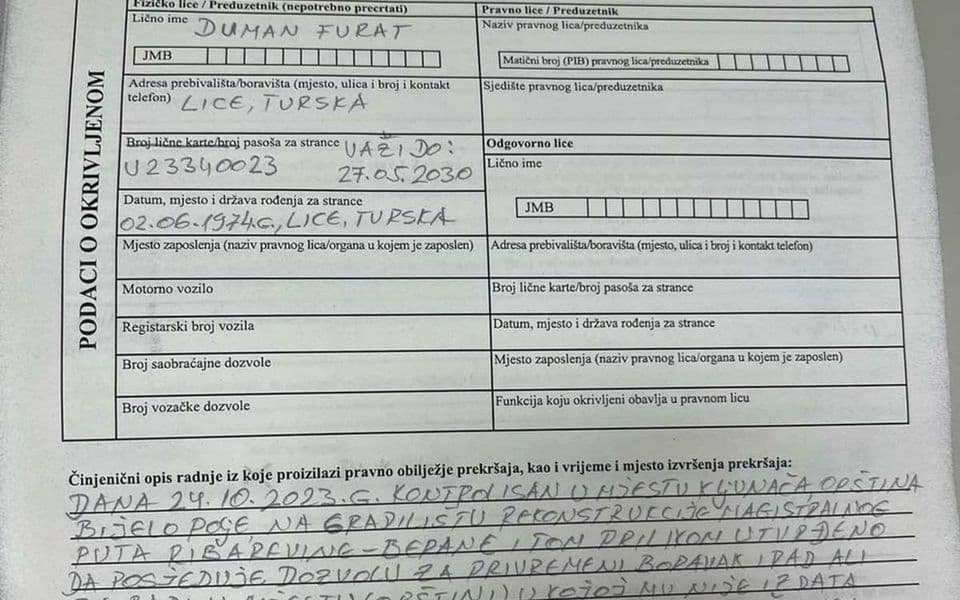 Fizičko lice / Preduzetnik (nepotrebno precrtati)
Pravno lice / Preduzetnik
Lično ime DUMAN FURAT
Naziv pravnog lica/preduzetnika
JMB
Matični broj (PIB) pravnog lica/preduzetnika
Adresa prebivališta/boravišta (mjesto, ulica i broj i kontakt
telefon) LICE, TURSKA
Sjedište pravnog lica/preduzetnika
Broj lične karte/broj pasoša za strance VAŽI DO:
U23340023 27.05.2030
Odgovorno lice
Lično ime
JMB
Datum, mjesto i država rođenja za strance
02.06.1974G., LICE, TURSKA
Mjesto zaposlenja (naziv pravnog lica/organa u kojem je zaposlen)
Adresa prebivališta/boravišta (mjesto, ulica i broj i kontakt telefon)
Motorno vozilo
Broj lične karte/broj pasoša za strance
Registarski broj vozila
Datum, mjesto i država rođenja za strance
Broj saobraćajne dozvole
Mjesto zaposlenja (naziv pravnog lica/organa u kojem je zaposlen)
Broj vozačke dozvole
Funkcija koju okrivljeni obavlja u pravnom licu
PODACI O OKRIVLJENOM
Činjenični opis radnje iz koje proizilazi pravno obilježje prekršaja, kao i vrijeme i mjesto izvršenja prekršaja:
DANA 24.10.2023.G. KONTROLISAN U MJESTU KLJUNAČA, OPŠTINA
BIJELO POLJE, NA GRADILIŠTU REKONSTRUKCIJE MAGISTRALNOG
PUTA RIBAREVINE-BERANE I TOM PRILIKOM UTVRĐENO
DA POSJEDUJE DOZVOLU ZA PRIVREMENI BORAVAK I RAD ALI
(OPŠTINI) U KOJOJ MU NIJE IZDATA